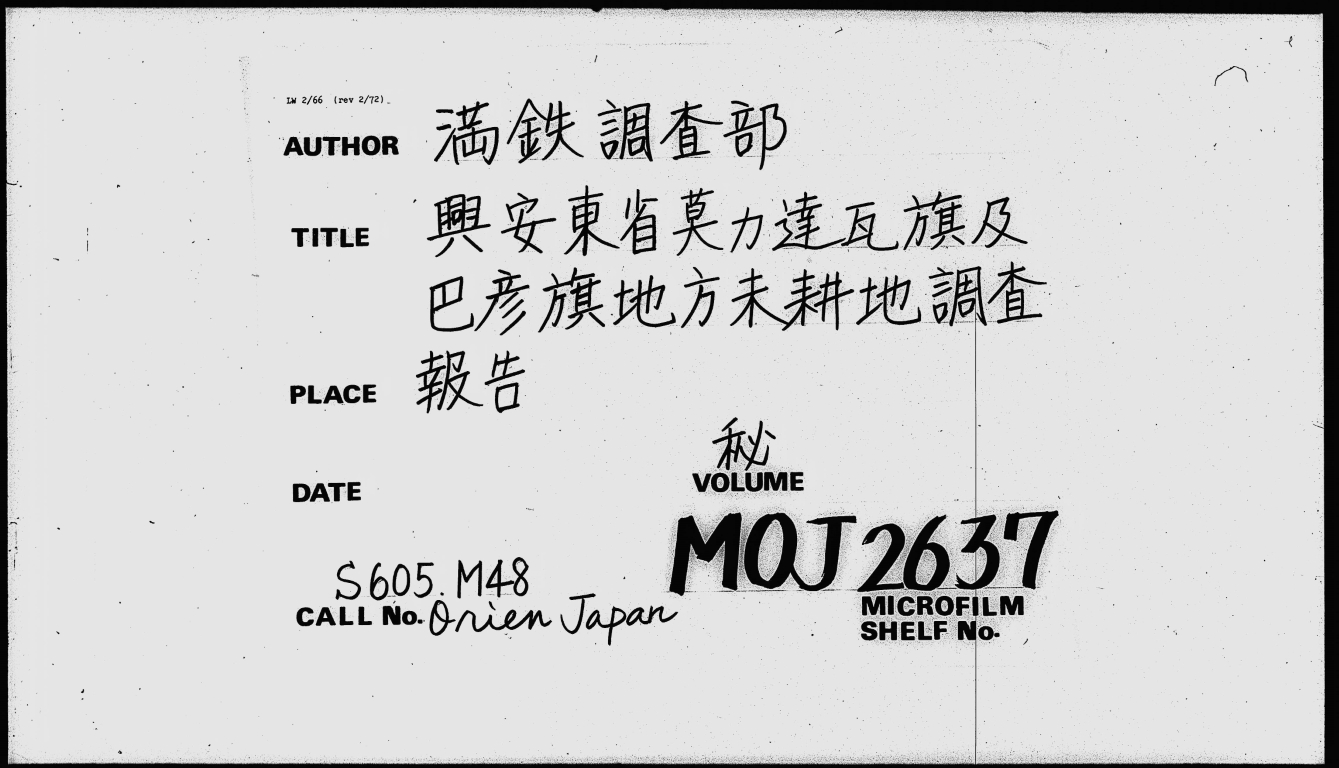 LW 2/66 (rev 2/72)
AUTHOR 満鉄調査部
TITLE 興安東省莫力達瓦旗及
巴彦旗地方未耕地調査
PLACE 報告
秘
DATE VOLUME
MOJ 2637
S605.M48
CALL No. Orien Japan
MICROFILM
SHELF No.